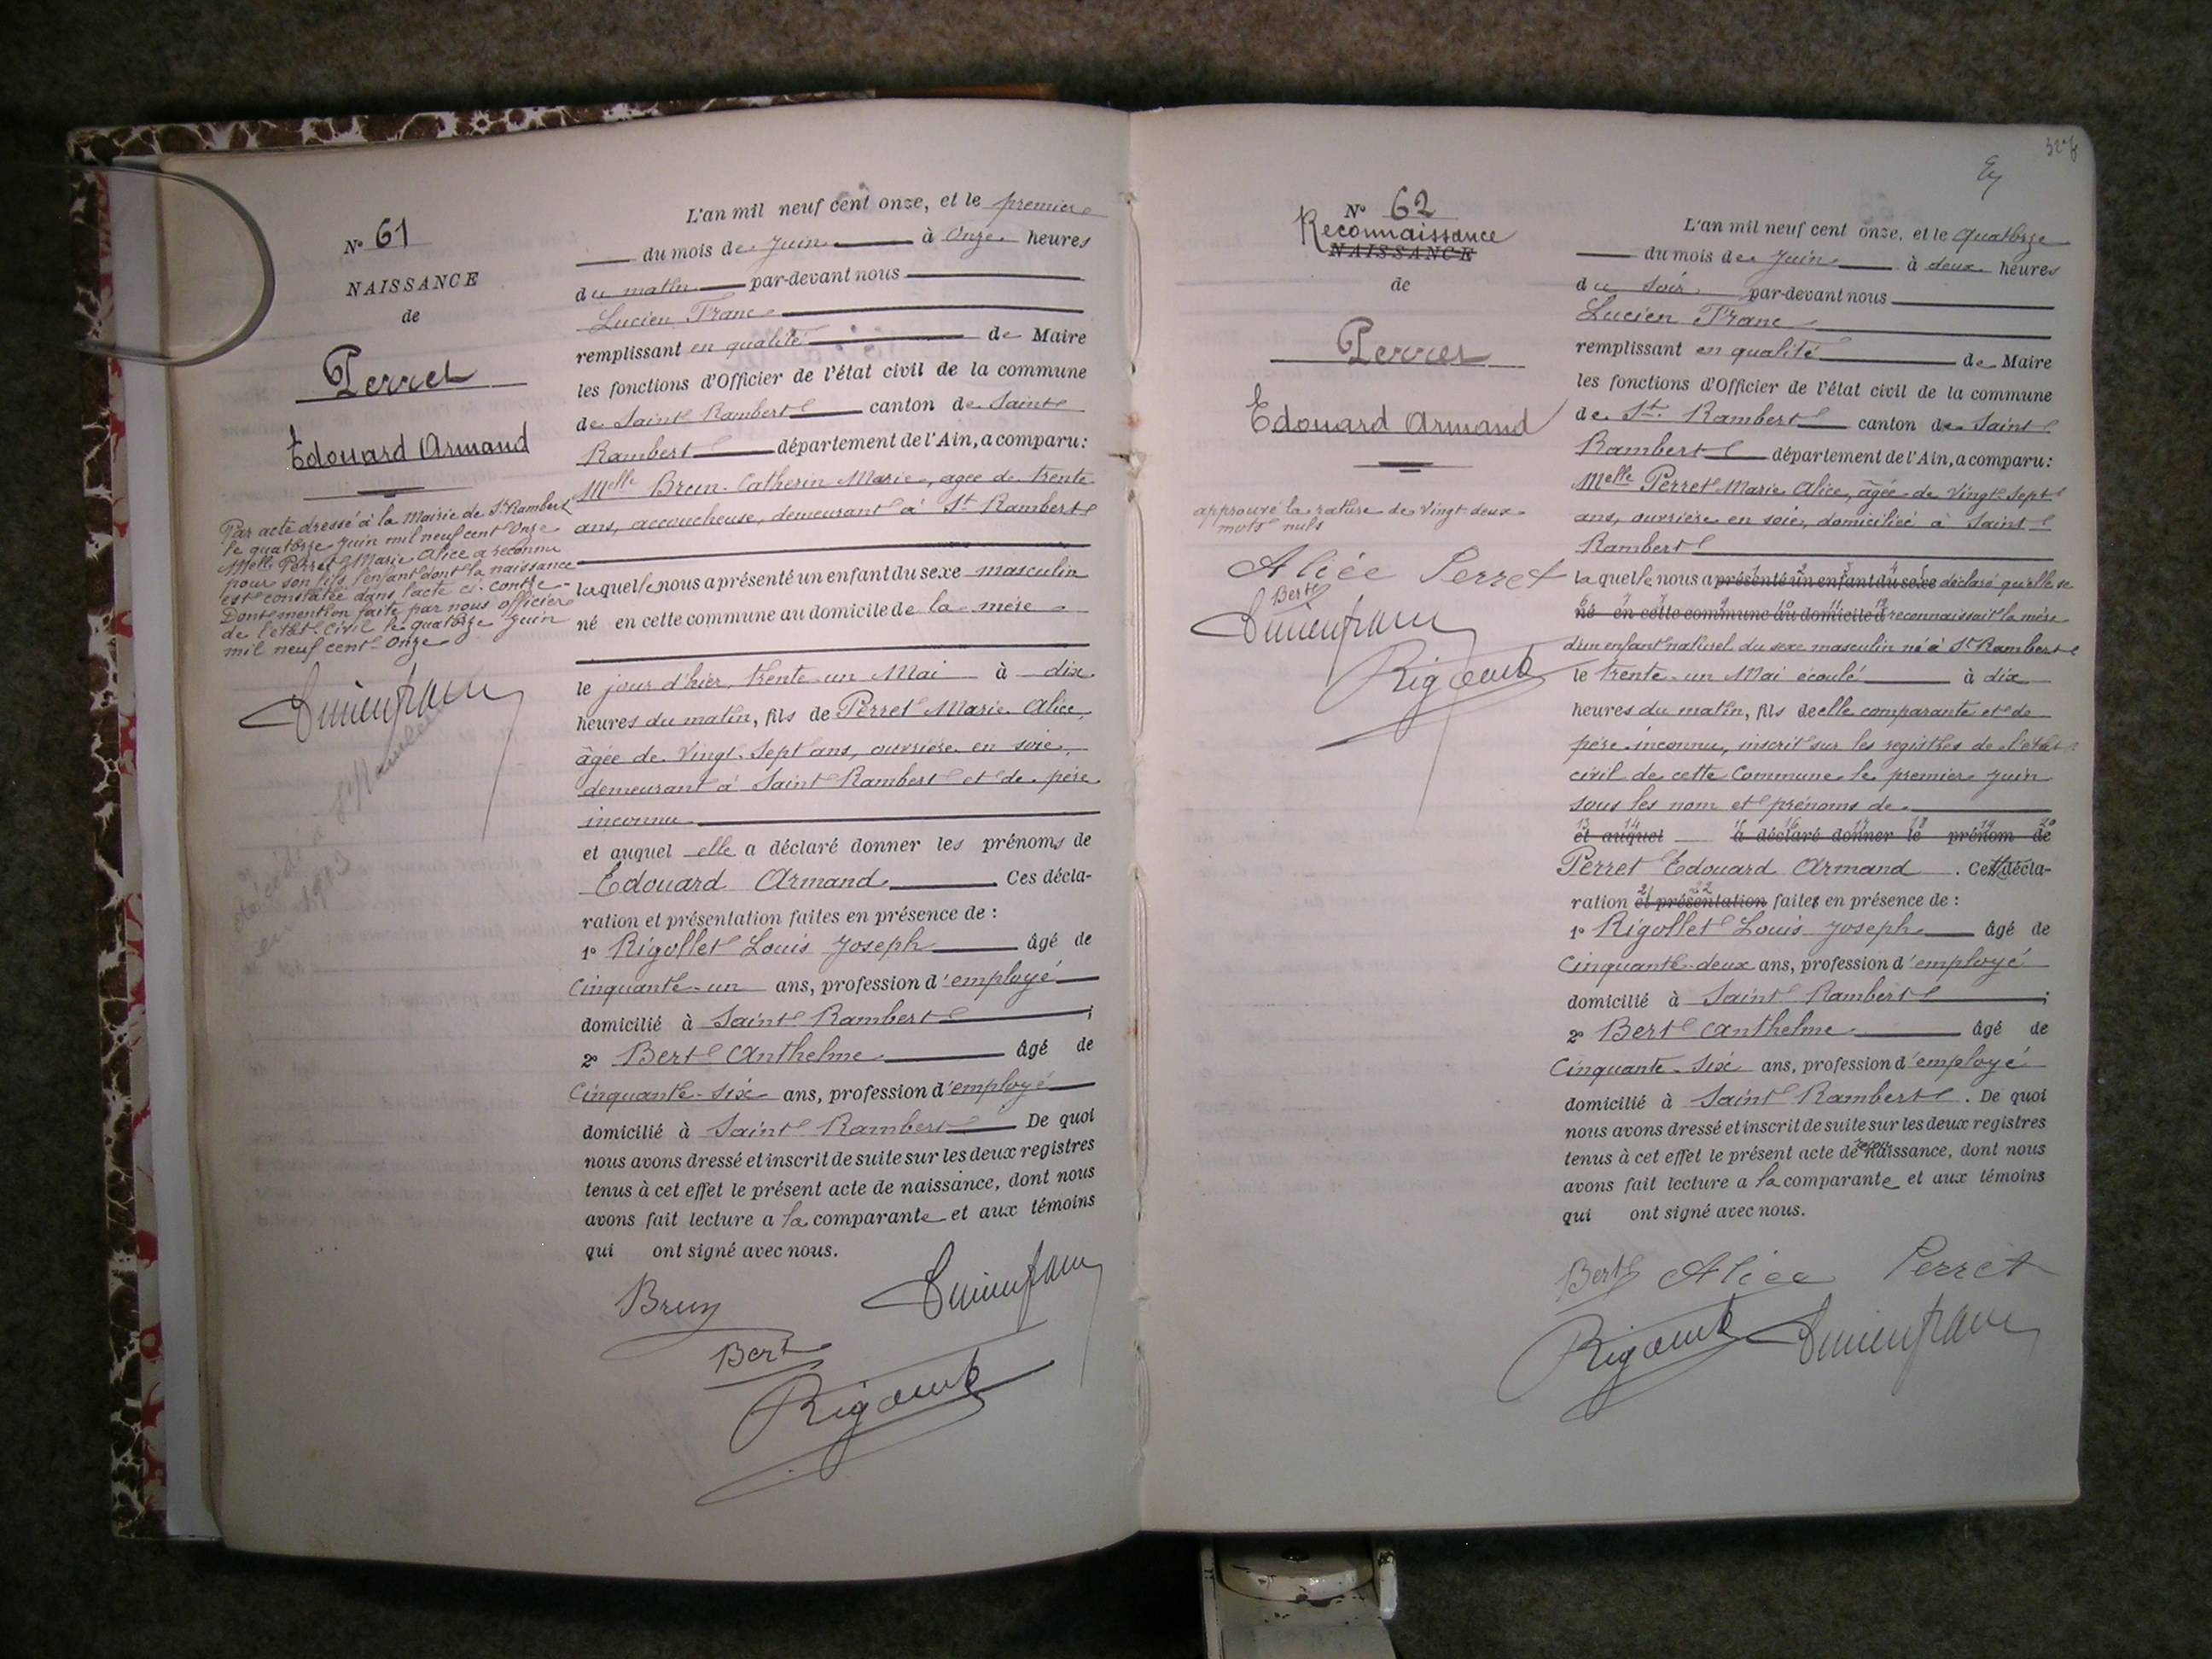 N° 61
NAISSANCE
de
Perret
Edouard Armand
Par acte dressé à la Mairie de St Rambert
le quatorze juin mil neuf cent onze
Melle Perret Marie Alice a reconnu
pour son fils l'enfant dont la naissance
est constatée dans l'acte ci-contre -
Dont mention faite par nous officier
de l'état-civil le quatorze juin
mil neuf cent onze
décédé à
en 1913
L'an mil neuf cent onze, et le premier
du mois de juin à onze heures
du matin par-devant nous
Lucien Franc
remplissant en qualité de Maire
les fonctions d'Officier de l'état civil de la commune
de Saint Rambert canton de Saint
Rambert département de l'Ain, a comparu :
Melle Brun Catherin Marie, agée de trente
ans, accoucheuse, demeurant à St Rambert
laquelle nous a présenté un enfant du sexe masculin
né en cette commune au domicile de la mère
le jour d'hier, trente-un Mai à dix
heures du matin, fils de Perret Marie Alice,
âgée de vingt-sept ans, ouvrière en soie,
demeurant à Saint Rambert et de père
inconnu
et auquel elle a déclaré donner les prénoms de
Edouard Armand Ces décla-
ration et présentation faites en présence de :
1° Rigollet Louis Joseph âgé de
Cinquante-un ans, profession d'employé
domicilié à Saint Rambert ;
2° Bert Anthelme âgé de
Cinquante-six ans, profession d'employé
domicilié à Saint Rambert De quoi
nous avons dressé et inscrit de suite sur les deux registres
tenus à cet effet le présent acte de naissance, dont nous
avons fait lecture a la comparante et aux témoins
qui ont signé avec nous.
Brun
Lucien Franc
Bert
N° 62
Reconnaissance
NAISSANCE
de
Perret
Edouard Armand
approuvé la rature de vingt deux
mots nuls
Alice Perret
Bert
Lucien Franc
L'an mil neuf cent onze, et le quatorze
du mois de juin à deux heures
du soir par-devant nous
Lucien Franc
remplissant en qualité de Maire
les fonctions d'Officier de l'état civil de la commune
de St. Rambert canton de Saint
Rambert département de l'Ain, a comparu :
Melle Perret Marie Alice, âgée de vingt-sept
ans, ouvrière en soie, domiciliée à Saint
Rambert
laquelle nous a présenté un enfant du sexe déclaré qu'elle se
né en cette commune au domicile d reconnaissait la mère
d'un enfant naturel du sexe masculin né à St Rambert
le trente-un Mai écoulé à dix
heures du matin, fils de elle comparante et de
père inconnu, inscrit sur les registres de l'état
civil de cette Commune le premier juin
sous les nom et prénoms de
et auquel a déclaré donner le prénom de
Perret Edouard Armand . Cette décla-
ration et présentation faites en présence de :
1° Rigollet Louis Joseph âgé de
Cinquante-deux ans, profession d'employé
domicilié à Saint Rambert ;
2° Bert Anthelme âgé de
Cinquante-six ans, profession d'employé
domicilié à Saint Rambert . De quoi
nous avons dressé et inscrit de suite sur les deux registres
tenus à cet effet le présent acte de reconnaissance, dont nous
avons fait lecture a la comparante et aux témoins
qui ont signé avec nous.
Bert Alice Perret
Lucien Franc